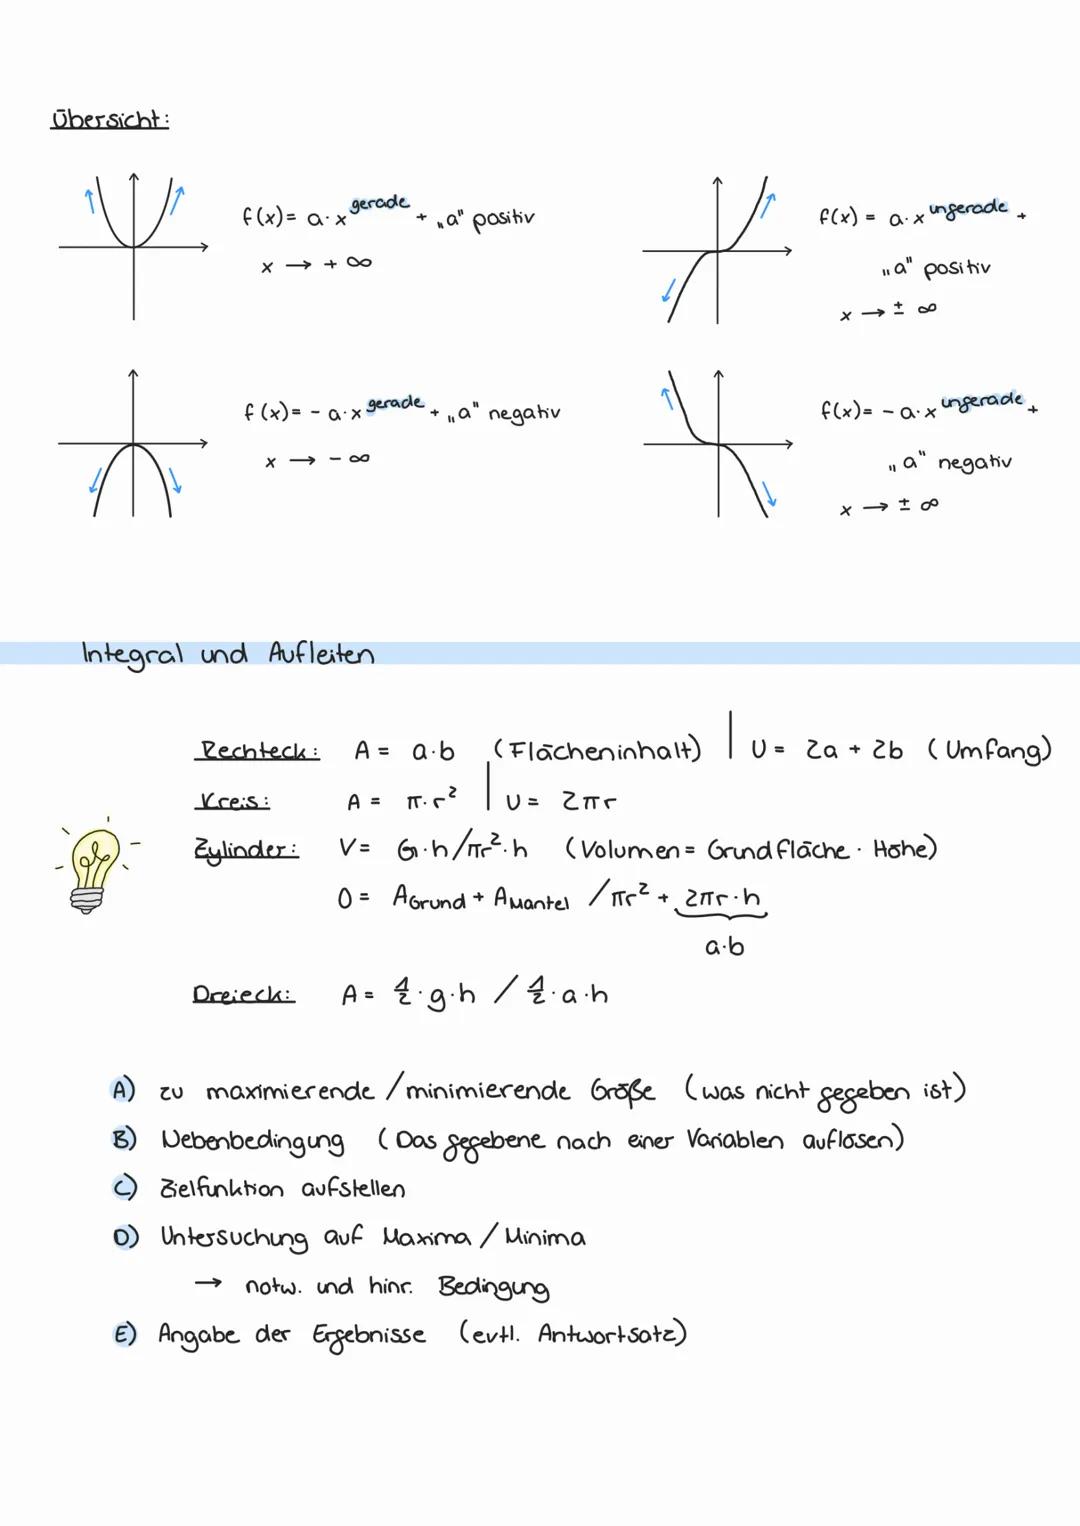 Übersicht:
f(x) = a · x^gerade + „a" positiv
x → + ∞
f(x) = a · x^ungerade +
„a" positiv
x → ± ∞
f(x) = - a · x^gerade + „a" negativ
x → - ∞
f(x) = - a · x^ungerade +
„a" negativ
x → ± ∞
Integral und Aufleiten
Rechteck: A = a·b (Flächeninhalt) | U = 2a + 2b (Umfang)
Kreis: A = π·r² | U = 2πr
Zylinder: V = G·h/πr²·h (Volumen = Grundfläche · Höhe)
O = AGrund + AMantel / πr² + 2πr·h
a·b
Dreieck: A = ½·g·h / ½·a·h
A) zu maximierende / minimierende Größe (was nicht gegeben ist)
B) Nebenbedingung (Das gegebene nach einer Variablen auflösen)
C) Zielfunktion aufstellen
D) Untersuchung auf Maxima / Minima
→ notw. und hinr. Bedingung
E) Angabe der Ergebnisse (evtl. Antwortsatz)